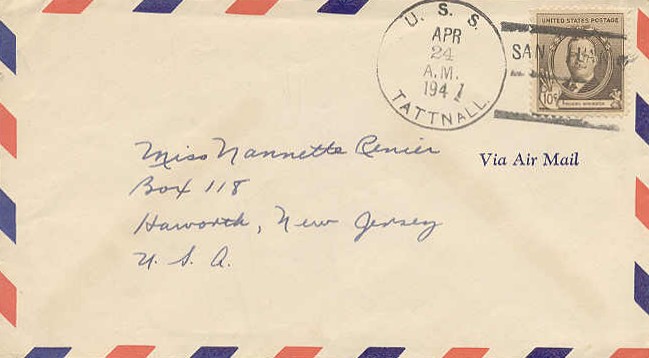 U. S. S.
APR
24
A.M.
1941
TATTNALL
SAN JUAN
UNITED STATES POSTAGE
10¢
Via Air Mail
Miss Nannette Renier
Box 118
Haworth, New Jersey
U. S. A.